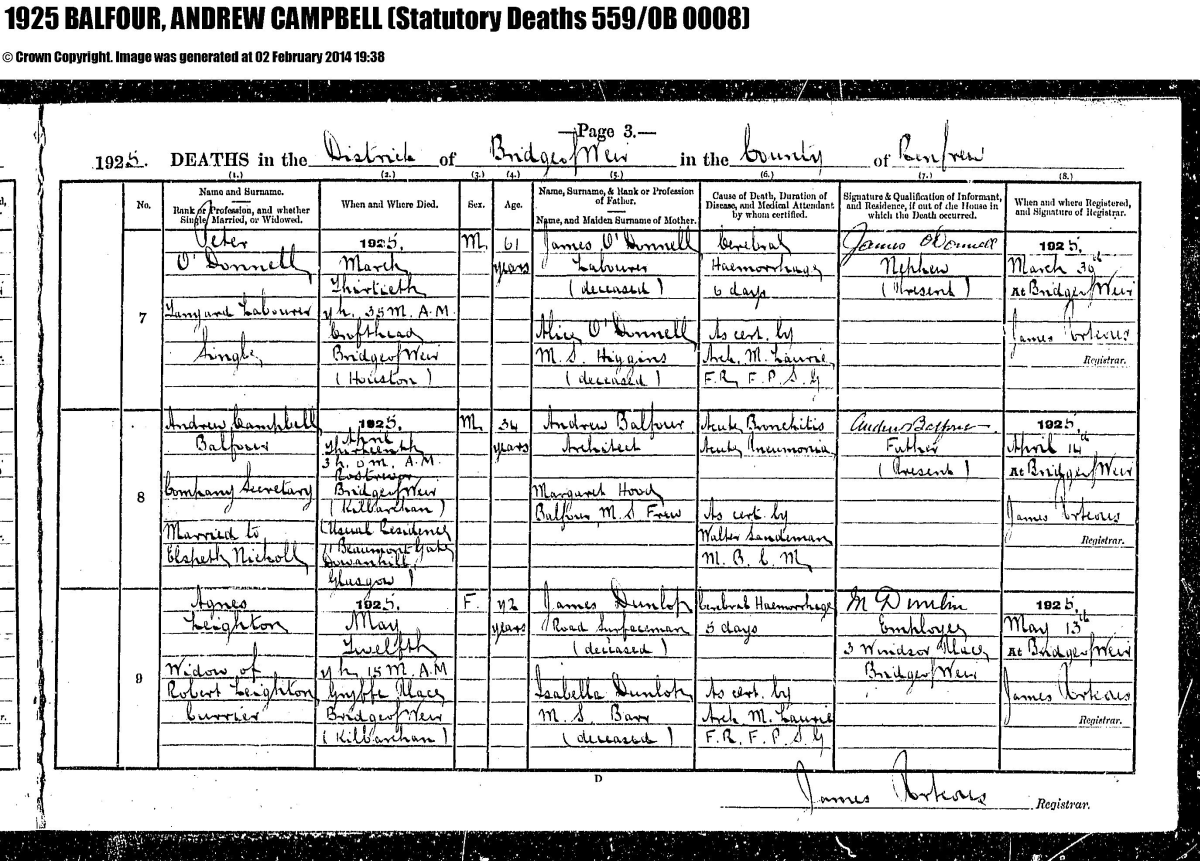 1925 BALFOUR, ANDREW CAMPBELL (Statutory Deaths 559/0B 0008)
© Crown Copyright. Image was generated at 02 February 2014 19:38
—Page 3.—
1925. DEATHS in the District of Bridge of Weir in the County of Renfrew
(1.) (2.) (3.) (4.) (5.) (6.) (7.) (8.)
No.
Name and Surname.
Rank or Profession, and whether
Single, Married, or Widowed.
When and Where Died.
Sex.
Age.
Name, Surname, & Rank or Profession
of Father.
Name, and Maiden Surname of Mother.
Cause of Death, Duration of
Disease, and Medical Attendant
by whom certified.
Signature & Qualification of Informant,
and Residence, if out of the House in
which the Death occurred.
When and where Registered,
and Signature of Registrar.
7
Peter
O'Donnell
Tanyard Labourer
Single
1925.
March
Thirtieth
7h. 35m. A.M.
Crofthead
Bridge of Weir
(Houston)
M.
61
years
James O'Donnell
Labourer
(deceased)
Alice O'Donnell
M. S. Higgins
(deceased)
Cerebral
Haemorrhage
6 days
As cert. by
Arch. M. Laurie
F. R. F. P. S. G
James O'Donnell
Nephew
(Present)
1925.
March 30th
At Bridge of Weir
James Porteous
Registrar.
8
Andrew Campbell
Balfour
Company Secretary
Married to
Elspeth Nicholl
1925.
April
Thirteenth
3h. 0m. A.M.
Rostrevor
Bridge of Weir
(Kilbarchan)
(Usual Residence
Beaumont Gate
Dowanhill
Glasgow)
M.
34
years
Andrew Balfour
Architect
Margaret Hood
Balfour, M. S. Frew
Acute Bronchitis
Acute Pneumonia
As cert. by
Walter Sandeman
M. B. C. M
Andrew Balfour
Father
(Present)
1925.
April 14th
At Bridge of Weir
James Porteous
Registrar.
9
Agnes
Leighton
Widow of
Robert Leighton
Currier
1925.
May
Twelfth
7h. 15m. A.M
Gryffe Place
Bridge of Weir
(Kilbarchan)
F.
72
years
James Dunlop
Road Surfaceman
(deceased)
Isabella Dunlop
M. S. Barr
(deceased)
Cerebral Haemorrhage
5 days
As cert. by
Arch. M. Laurie
F. R. F. P. S. G
Employer
3 Windsor Place
Bridge of Weir
1925.
May 13th
At Bridge of Weir
James Porteous
Registrar.
D
James Porteous Registrar.